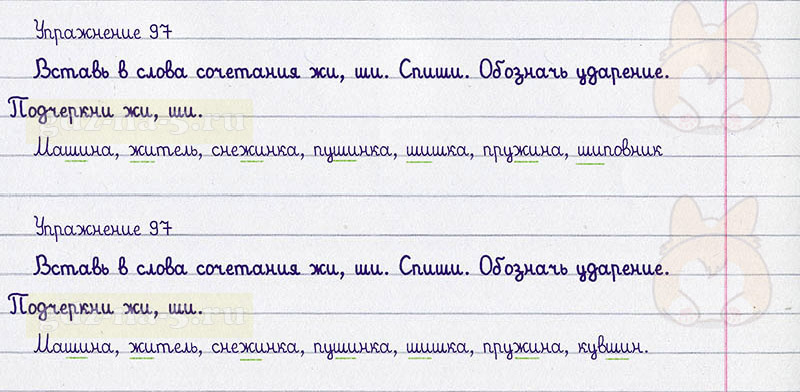 Упражнение 97
Вставь в слова сочетания жи, ши. Спиши. Обозначь ударение.
Подчеркни жи, ши.
Машина, житель, снежинка, пушинка, шишка, пружина, шиповник
Упражнение 97
Вставь в слова сочетания жи, ши. Спиши. Обозначь ударение.
Подчеркни жи, ши.
Машина, житель, снежинка, пушинка, шишка, пружина, кувшин.